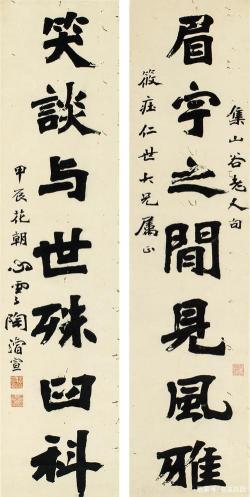 集山谷老人句
眉宇之閒見風雅
筱庄仁世大兄属正
笑談与世殊臼科
甲辰花朝心雲陶濬宣